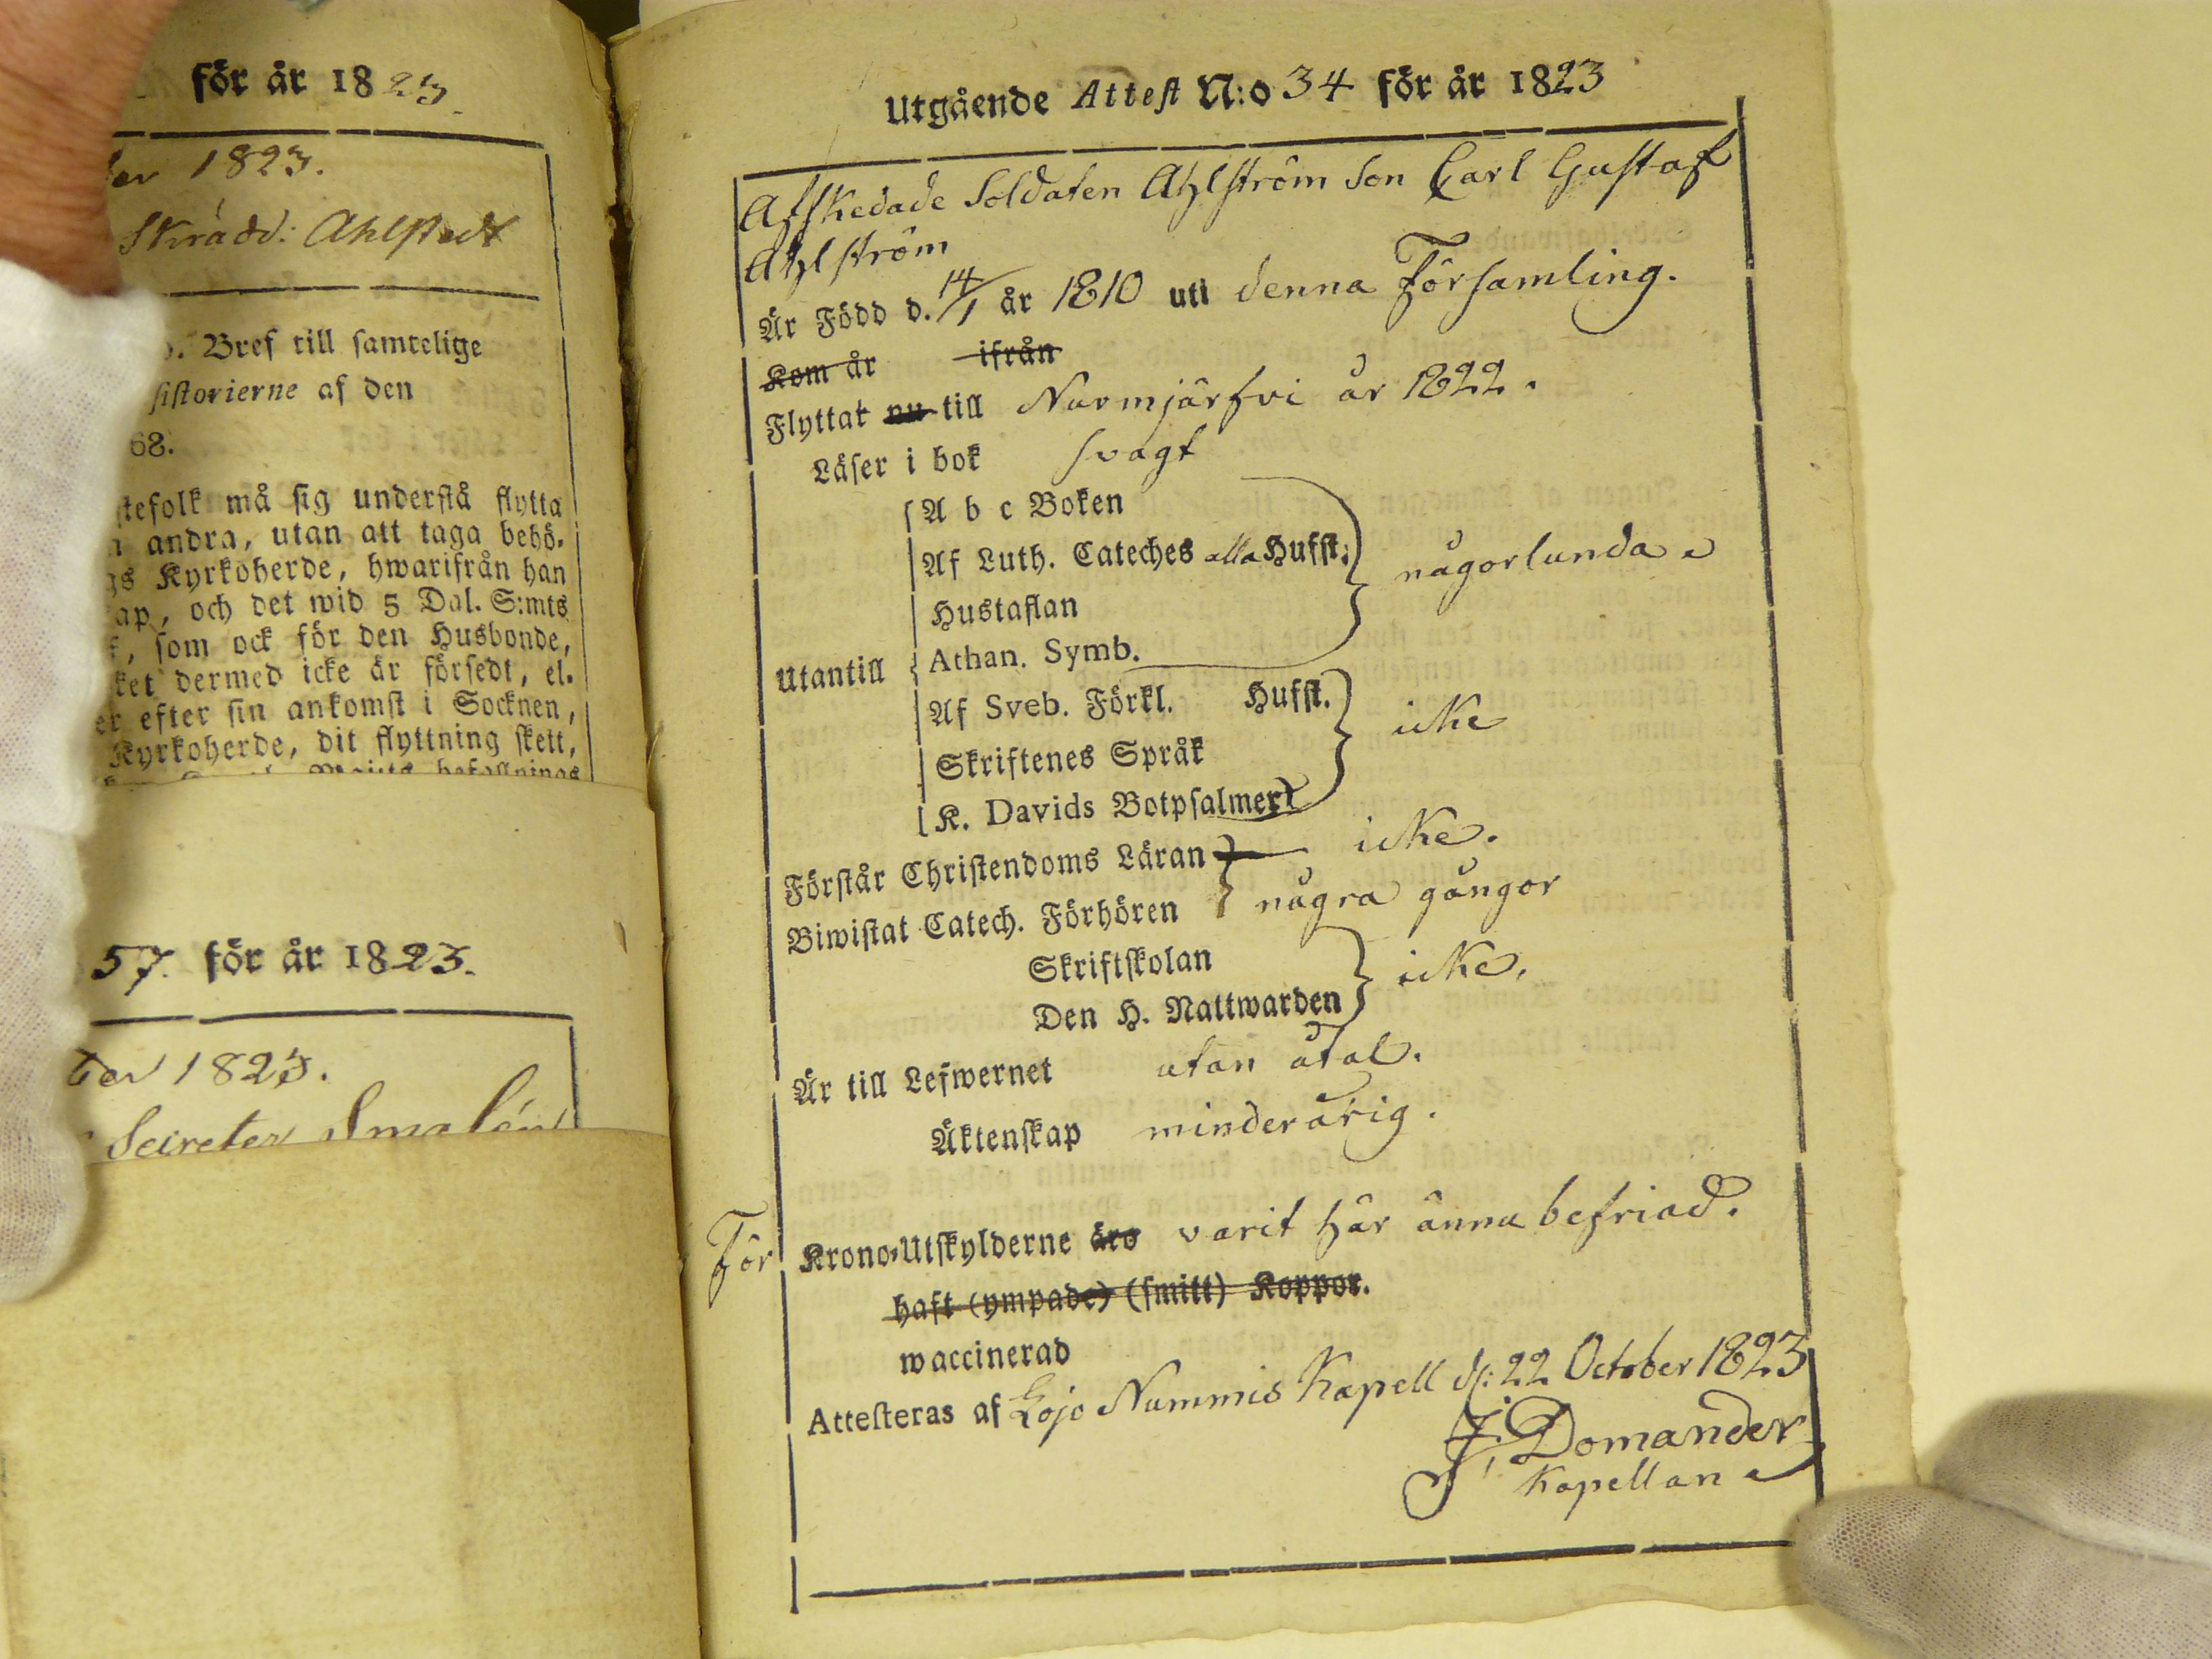 för år 1823
1823.
Skrädd: Ahlstedt
Bref till samtelige
sistorierne af den
68.
stefolk må sig understå flytta
andra, utan att taga behö-
gs Kyrkoherde, hwarifrån han
ap, och det wid 5 Dal. S:mts
som ock för den Husbonde,
ket dermed icke är försedt, el-
er efter sin ankomst i Socknen,
Kyrkoherde, dit flyttning skett,
57. för år 1823.
1823.
Utgående Attest N:o 34 för år 1823
Afskedade Soldaten Ahlström Son Carl Gustaf
Ahlström
Är Född d. 14/1 år 1810 uti denna Församling.
Kom år ifrån
Flyttat nu till Nurmijärfvi år 1822.
Läser i bok svagt
Utantill
A b c Boken
Af Luth. Cateches alla Hufst.
Hustaflan
Athan. Symb.
någorlunda
Af Sveb. Förkl. Hufst.
Skriftenes Språk
K. Davids Botpsalmer
icke
Förstår Christendoms Läran icke.
Biwistat Catech. Förhören några gångor
Skriftskolan
Den H. Nattwarden
icke.
Är till Lefwernet utan åtal.
Äktenskap minderårig.
För Krono-Utskylderne äro varit här ännu befriad.
haft (ympade) (smitt) Koppor.
waccinerad
Attesteras af Lojo Nummis Kapell d: 22 October 1823
J. Domander
Kapellan